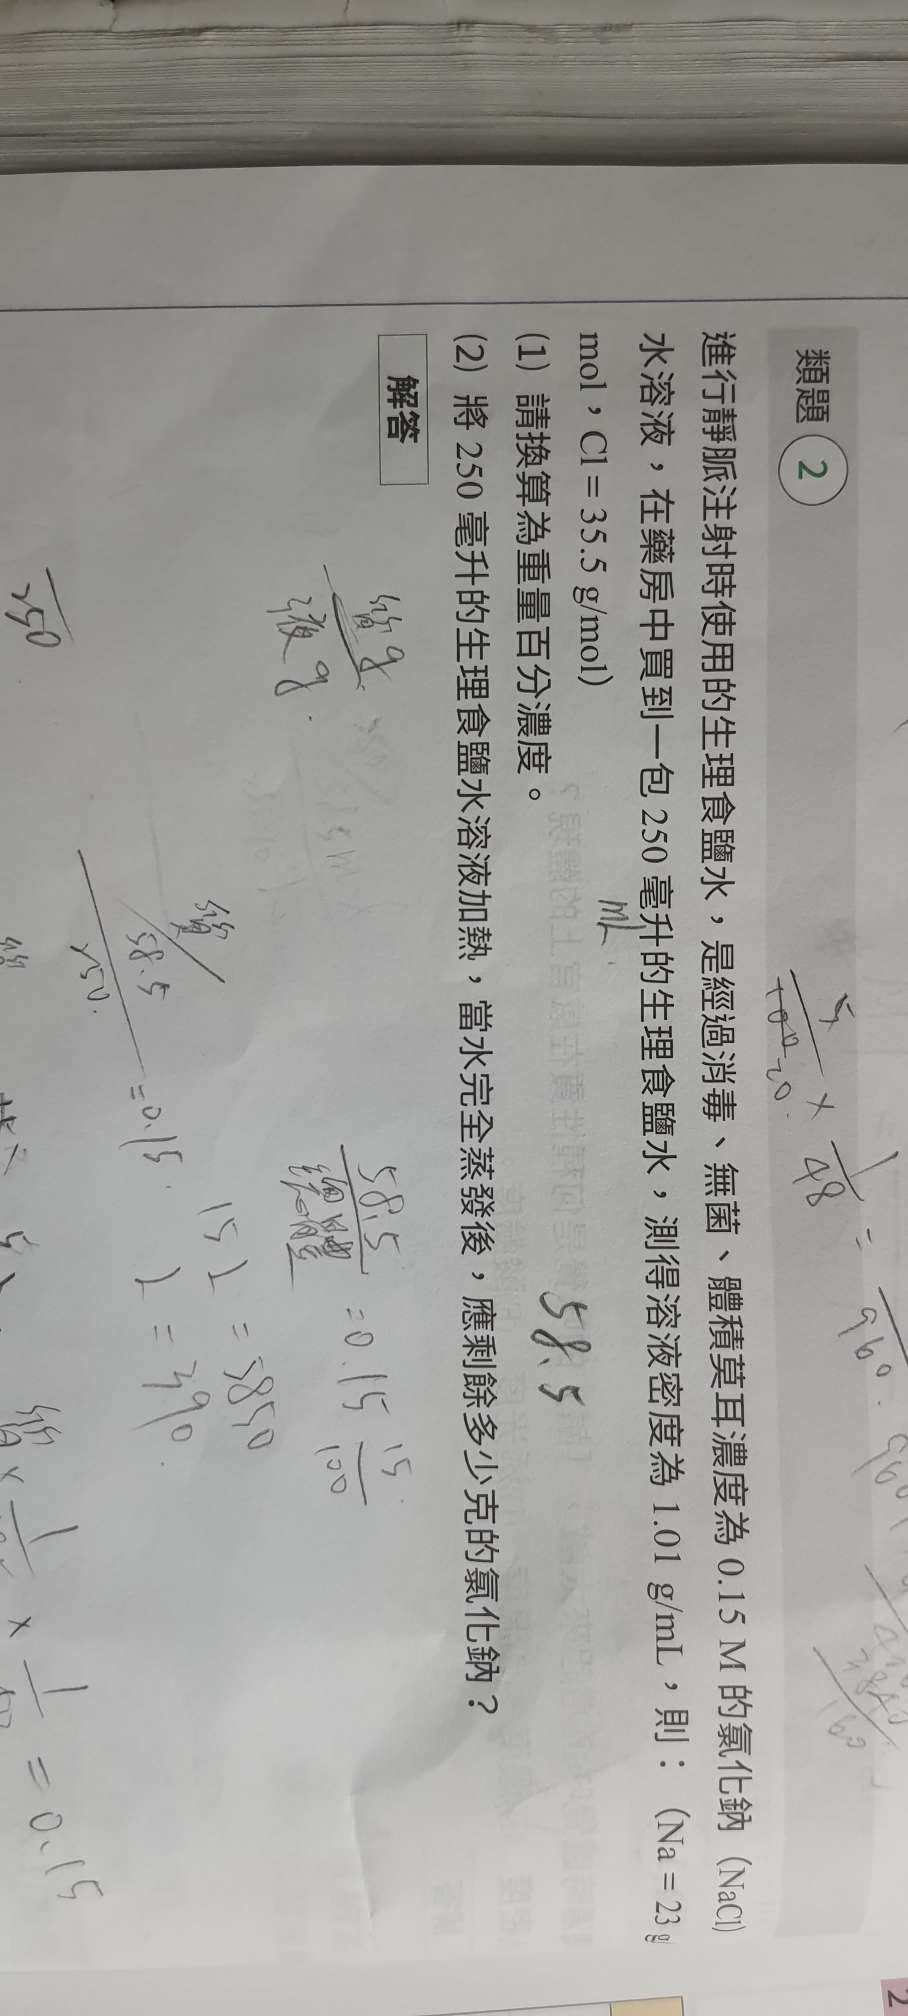 類題 2
進行靜脈注射時使用的生理食鹽水，是經過消毒、無菌、體積莫耳濃度為 0.15 M 的氯化鈉（NaCl）
水溶液，在藥房中買到一包 250 毫升的生理食鹽水，測得溶液密度為 1.01 g/mL，則：（Na = 23 g
mL
mol，Cl = 35.5 g/mol）
58.5
(1) 請換算為重量百分濃度。
(2) 將 250 毫升的生理食鹽水溶液加熱，當水完全蒸發後，應剩餘多少克的氯化鈉？
解答
質g
液g
58.5
= 0.15
15
100
15
= 5850
= 390
質
58.5
250
= 0.15
250
= 0.15
5
× 1
48
=
960
2